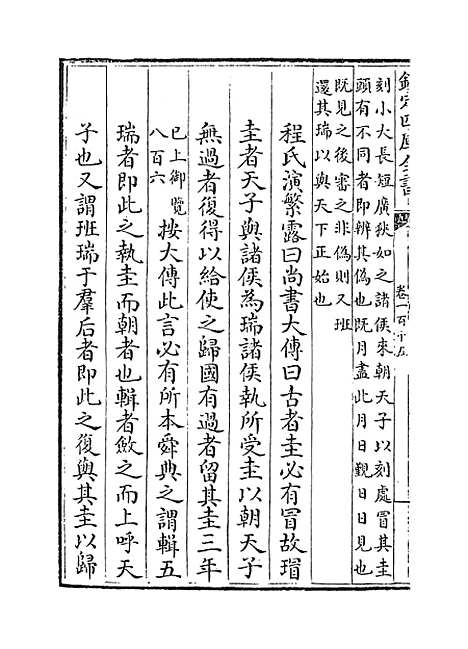 欽定四庫全書
卷一百十五
刻小大長短廣狹如之諸侯來朝天子以刻處冒其圭
頭有不同者即辨其偽也既月盡此月日覲日日見也
既見之後審之非偽則又班
還其瑞以與天下正始也
程氏演繁露曰尚書大傳曰古者圭必有冒故瑁
圭者天子與諸侯為瑞諸侯執所受圭以朝天子
無過者復得以給使之歸國有過者留其圭三年
已上御覽
八百六
按大傳此言必有所本舜典之謂輯五
瑞者即此之執圭而朝者也輯者斂之而上呼天
子也又謂班瑞于羣后者即此之復與其圭以歸